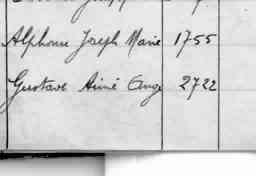 Alphonse Joseph Marie 1755
Gustave Aimé Ange 2722